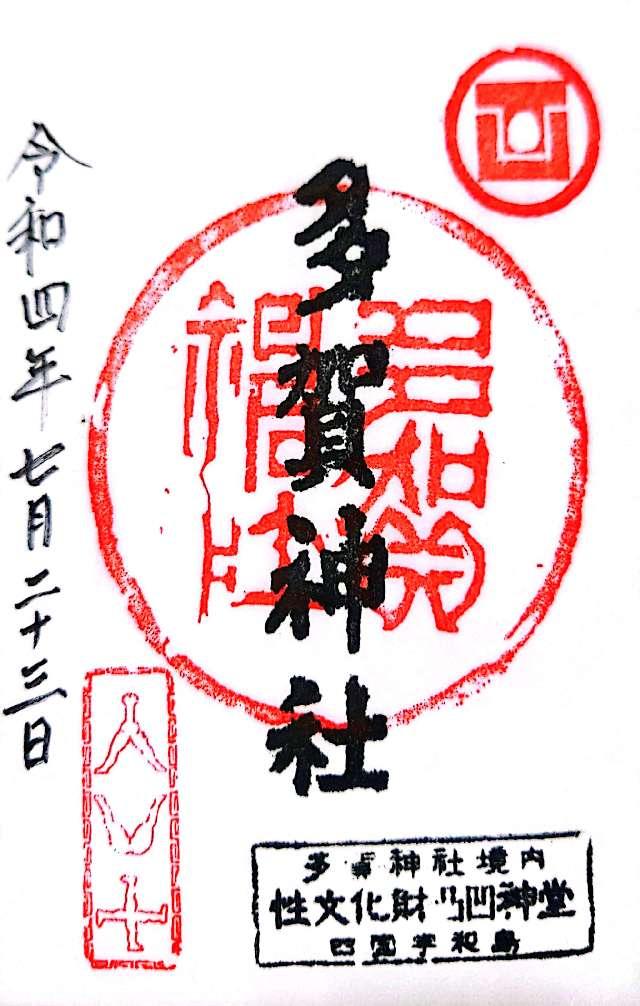 多賀神社
令和四年七月二十三日
多賀神社
多賀神社境内
性文化財凸凹神堂
四国宇和島